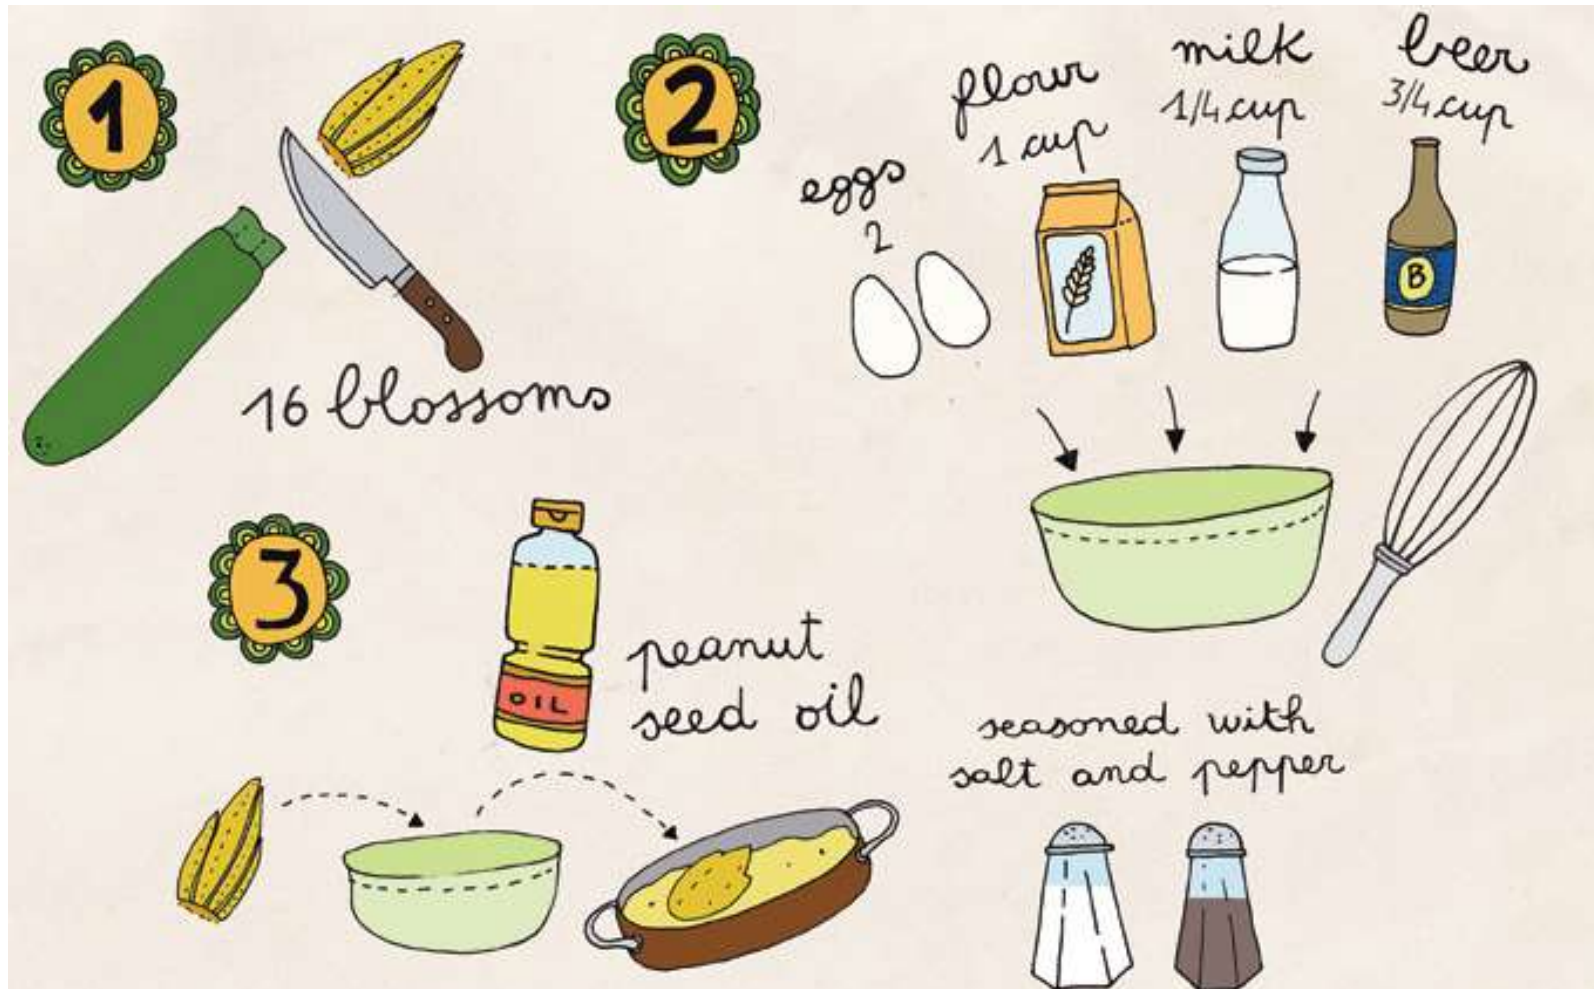 1
16 blossoms
2
eggs
2
flour
1 cup
milk
1/4 cup
beer
3/4 cup
B
seasoned with
salt and pepper
3
OIL
peanut
seed oil